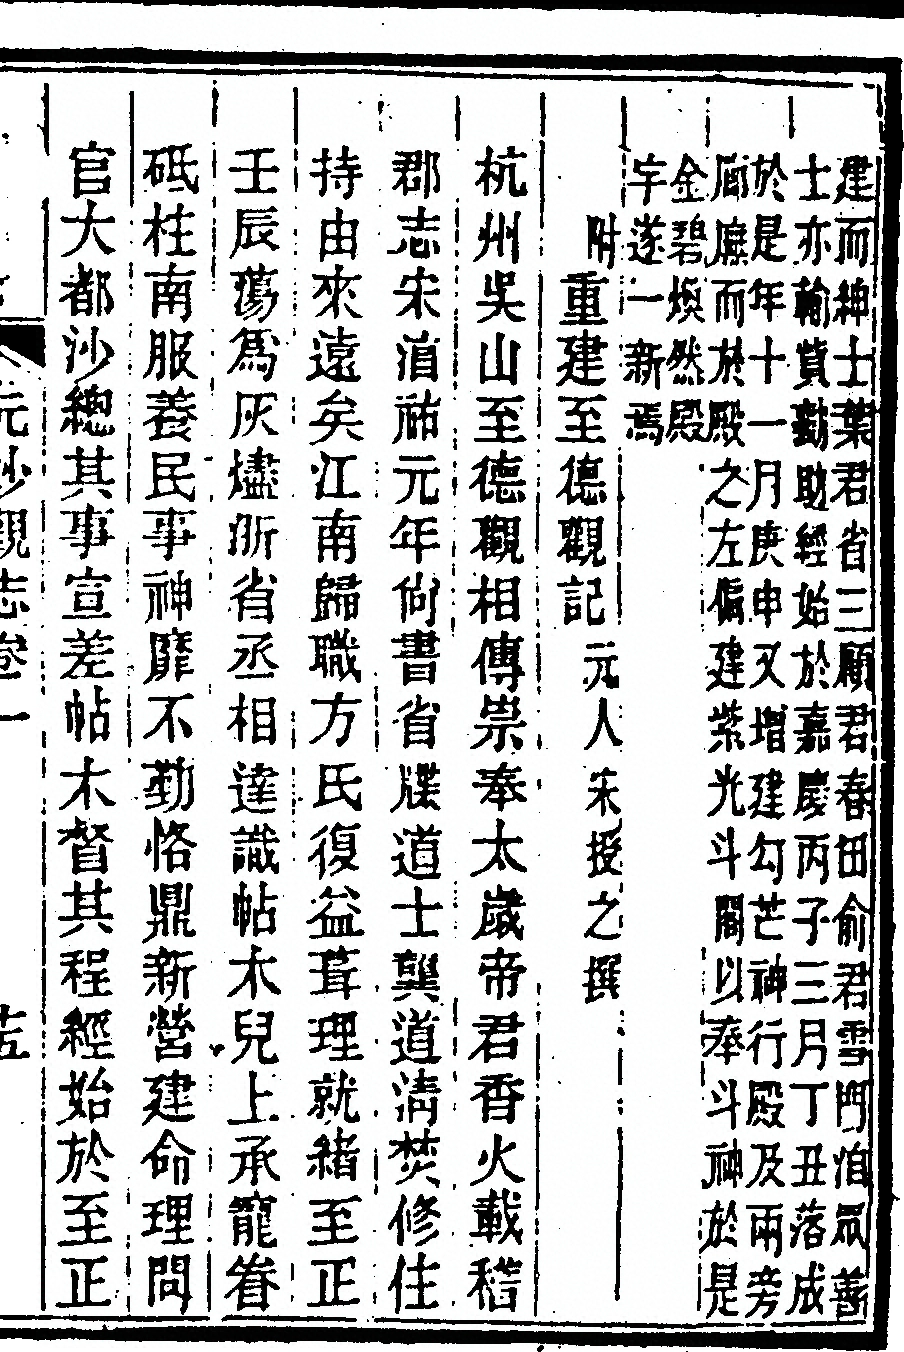 建而紳士葉君省三顧君春田俞君雪門洎眾善
士亦輸貲勷助經始於嘉慶丙子三月丁丑落成
於是年十一月庚申又增建勾芒神行殿及兩旁
廊廡而於殿之左偏建紫光斗閣以奉斗神於是
金碧煥然殿
宇遂一新焉
附重建至德觀記元人宋授之撰
杭州吳山至德觀相傳崇奉太歲帝君香火載稽
郡志宋湻祐元年尙書省牒道士龔道淸焚修住
持由來遠矣江南歸職方氏復益葺理就緒至正
壬辰蕩爲灰燼浙省丞相達識帖木兒上承寵眷
砥柱南服養民事神靡不勤恪鼎新營建命理問
官大都沙總其事宣差帖木督其程經始於至正
元妙觀志卷一